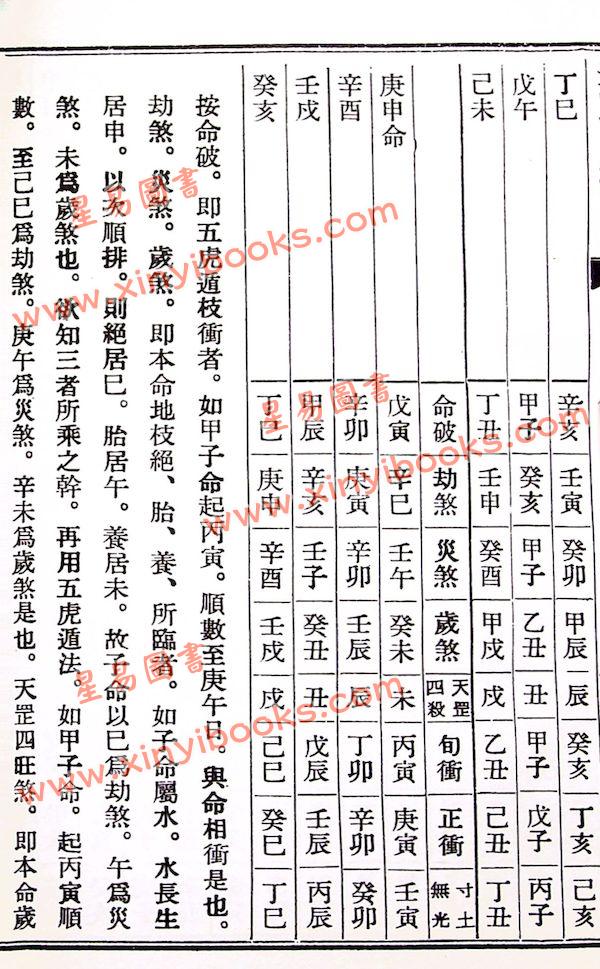 丁巳 辛亥 壬寅 癸卯 甲辰 辰 癸亥 丁亥 己亥
戊午 甲子 癸亥 甲子 乙丑 丑 甲子 戊子 丙子
己未 丁丑 壬申 癸酉 甲戌 戌 乙丑 己丑 丁丑
命破 劫煞 災煞 歲煞 天罡四殺 旬衝 正衝 寸土無光
庚申命 戊寅 辛巳 壬午 癸未 未 丙寅 庚寅 壬寅
辛酉 辛卯 庚寅 辛卯 壬辰 辰 丁卯 辛卯 癸卯
壬戌 甲辰 辛亥 壬子 癸丑 丑 戊辰 壬辰 丙辰
癸亥 丁巳 庚申 辛酉 壬戌 戌 己巳 癸巳 丁巳
按命破。即五虎遁枝衝者。如甲子命起丙寅。順數至庚午日。與命相衝是也。
劫煞。災煞。歲煞。即本命地枝絕、胎、養、所臨者。如子命屬水。水長生
居申。以次順排。則絕居巳。胎居午。養居未。故子命以巳爲劫煞。午爲災
煞。未爲歲煞也。欲知三者所乘之幹。再用五虎遁法。如甲子命。起丙寅順
數。至己巳爲劫煞。庚午爲災煞。辛未爲歲煞是也。天罡四旺煞。即本命歲
星易圖書
www.xinyibooks.com
星易圖書
www.xinyibooks.com
星易圖書
www.xinyibooks.com